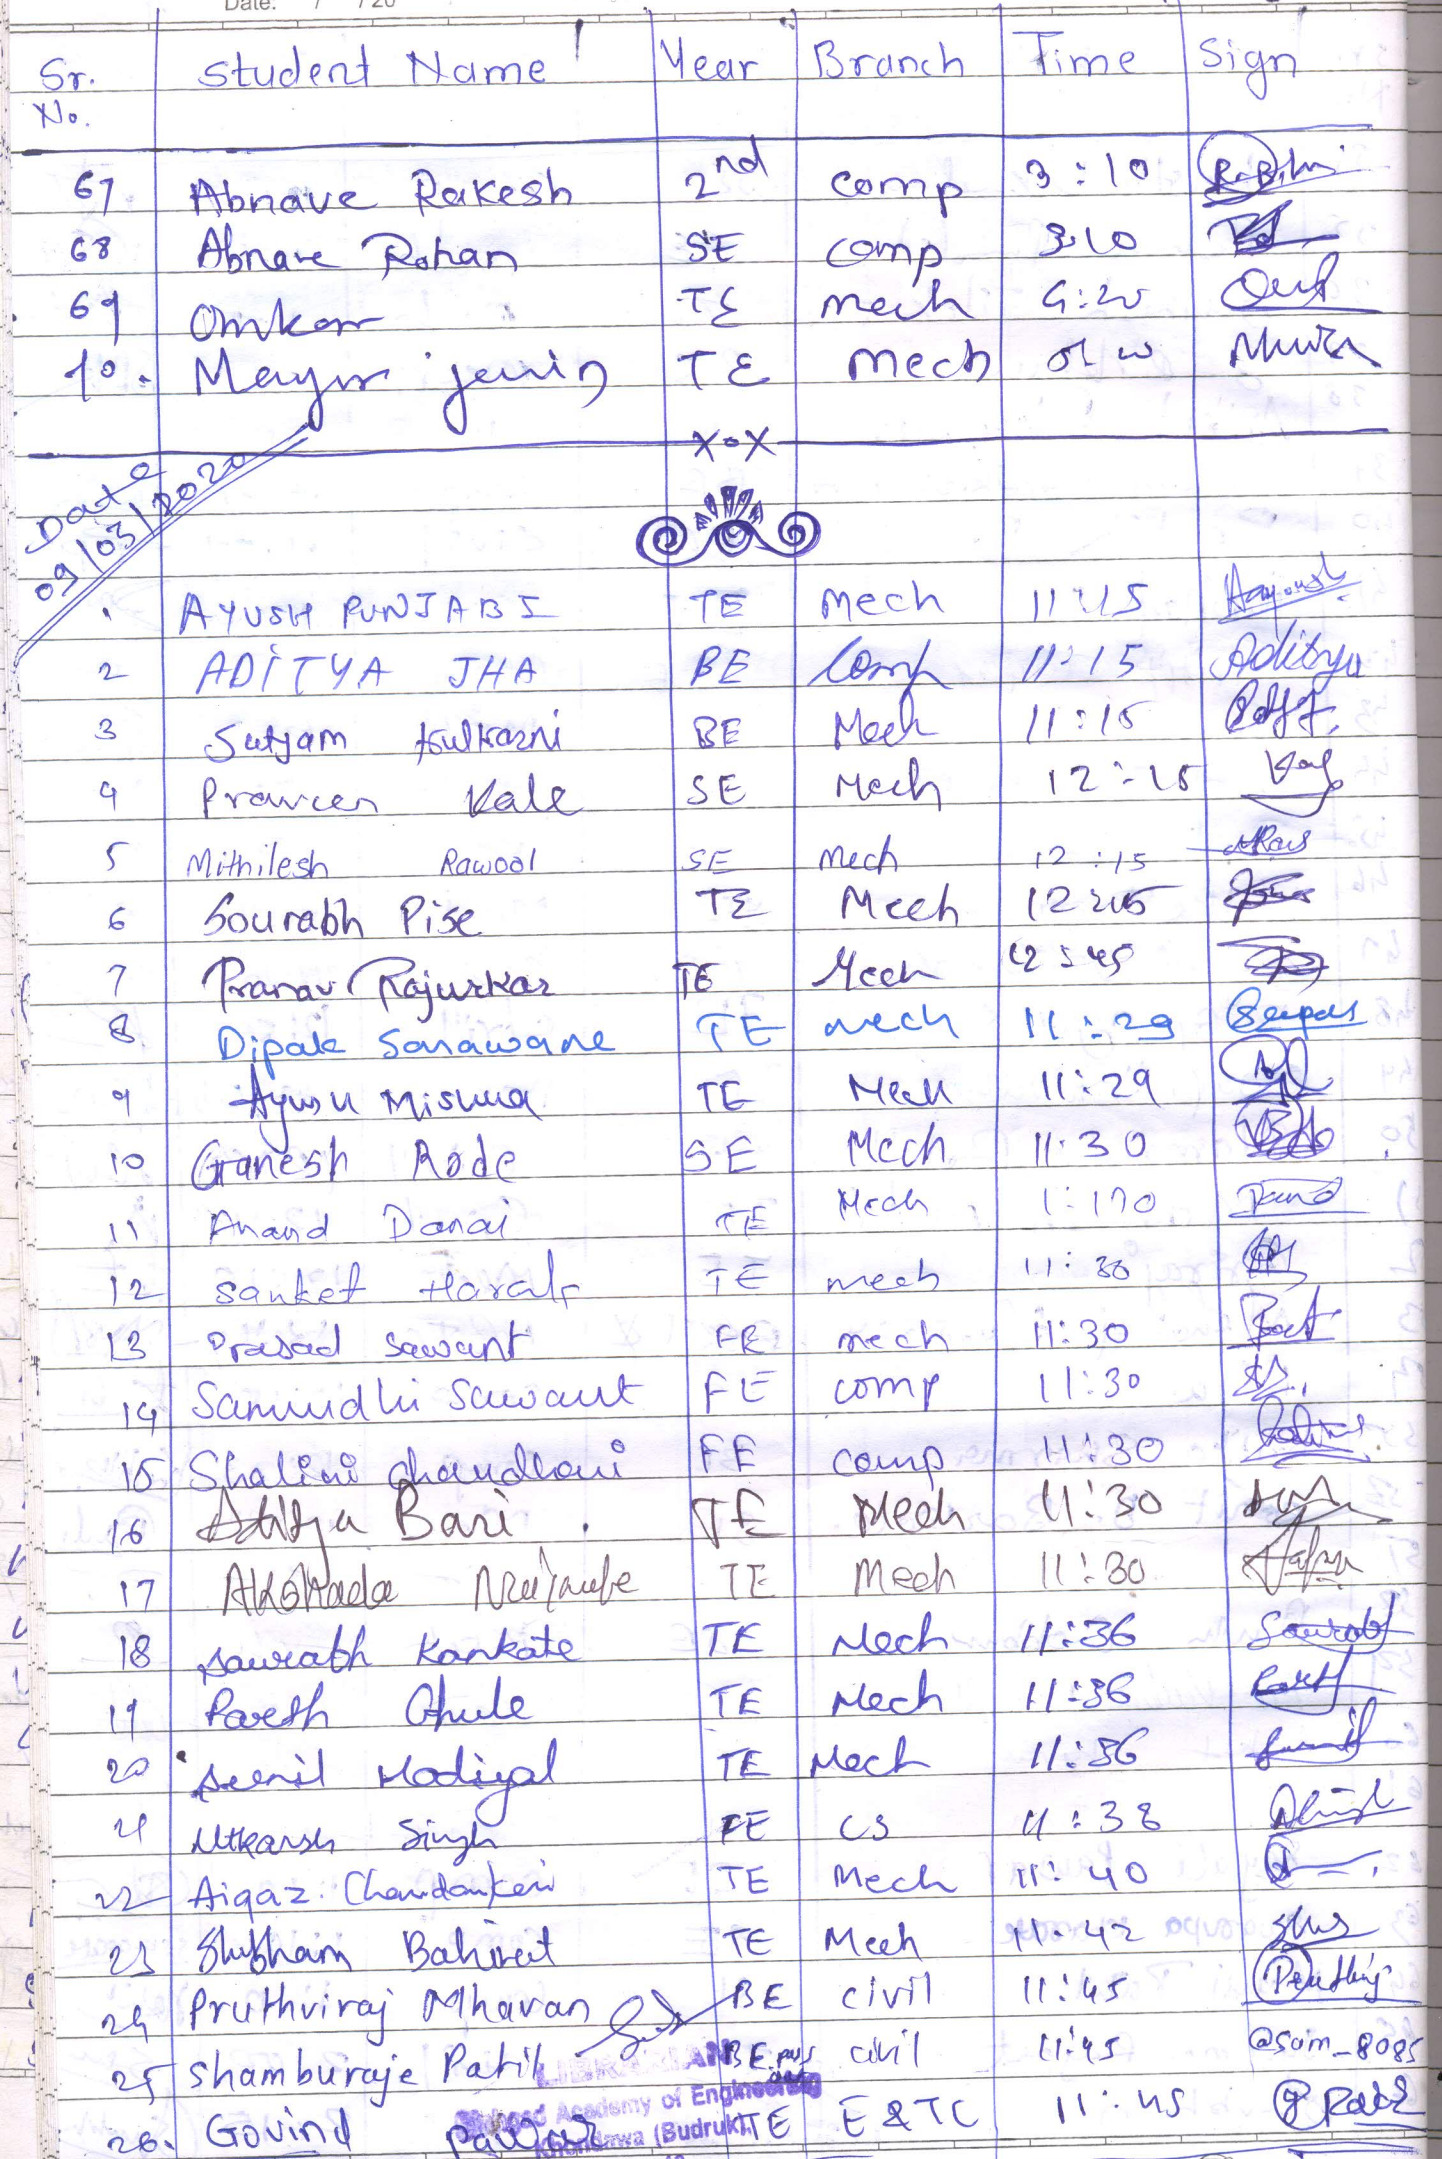 Date: / /20
Sr. No. Student Name Year Branch Time Sign
67 Abnave Rakesh 2nd comp 3:10
68 Abnave Rohan SE comp 3:10
69 Omkar TE mech
TE mech
X-o-X
Date 09/03/2020
1 AYUSH PUNJABI TE Mech 11:15 Aayush
2 ADITYA JHA BE Comp 11:15 Aditya
3 Satyam Kulkarni BE Mech 11:15
4 Praveen Kale SE Mech 12:15
5 Mithilesh Rawool SE Mech 12:15
6 Sourabh Pise TE Mech
7 Pranav Rajurkar TE Mech 12:45
8 Dipak Sonawane TE mech 11:29
9 Ayush Mishra TE Mech 11:29
10 Ganesh Rode SE Mech 11:30
11 Anand Danai TE Mech
12 Sanket TE mech 11:30
13 Prasad Sawant FE mech 11:30
14 Samrudhi Sawant FE comp 11:30
15 Shalini Chaudhari FE comp 11:30
16 Aditya Bari TE Mech 11:30
17 TE Mech 11:30
18 Saurabh Kankate TE Mech 11:36 Saurabh
19 Parth Ghule TE Mech 11:36
20 Sunil Madiyal TE Mech 11:36
21 Utkarsh Singh FE CS 11:38
22 Aiqaz Chandankeri TE Mech 11:40
23 Shubham Bahirat TE Mech 11:42
24 Pruthviraj Mhavan BE Civil 11:45
25 Shamburaje Patil BE civil 11:45 @Sam_8085
26. Govind Pawar TE E & TC 11:45
LIBRARIAN
Sinhgad Academy of Engineering
Kondhawa (Budruk)